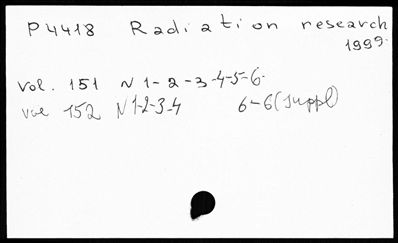 P4418 Radiation research
1999.
vol. 151 N 1-2-3-4-5-6.
vol 152 N 1-2-3-4 6-6(suppl)